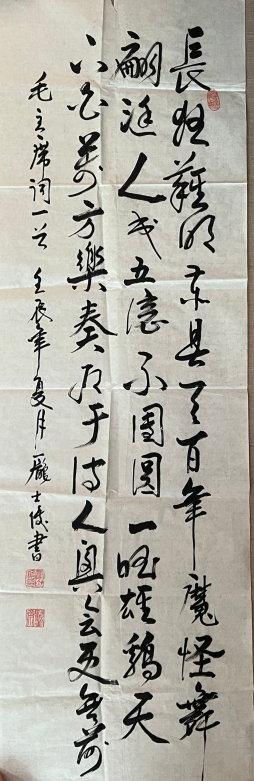 長夜難明赤县天百年魔怪舞
翩跹人民五億不團圓一唱雄鷄天
下白萬方樂奏有于诗人興会更無前
毛主席詞一首 壬辰年夏月 龐士俊書